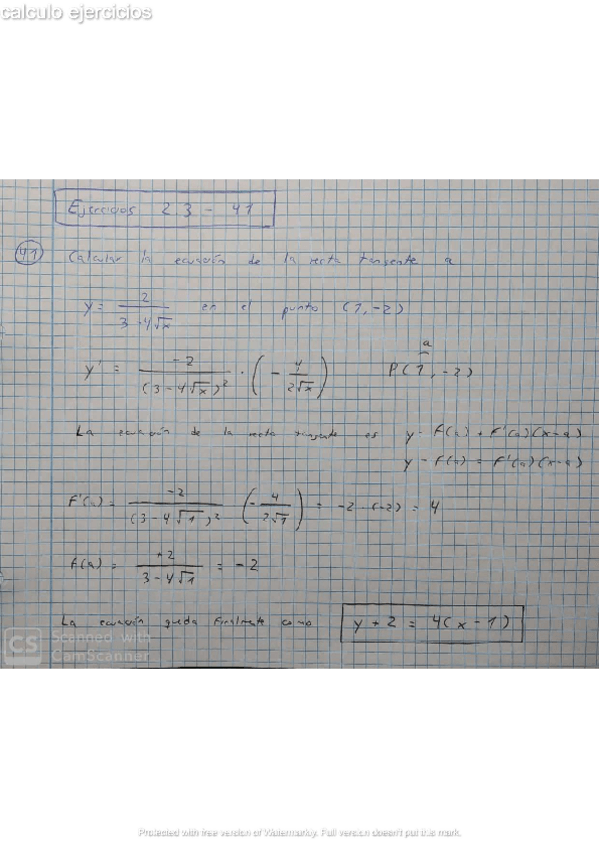 calculo ejercicios
Ejercicios 2.3 - 41
41 Calcular la ecuación de la recta tangente a
y = 2 / (3 - 4√x) en el punto (1, -2)
a
y' = -2 / (3 - 4√x)² · (- 4 / 2√x) P(1, -2)
La ecuación de la recta tangente es y = f(a) + f'(a)(x-a)
y - f(a) = f'(a)(x-a)
F'(a) = -2 / (3 - 4√1)² (- 4 / 2√1) = -2 · (-2) = 4
f(a) = +2 / 3 - 4√1 = -2
La ecuación queda finalmente como y + 2 = 4(x - 1)
CS Scanned with
CamScanner
Protected with free version of Watermarkly. Full version doesn't put this mark.